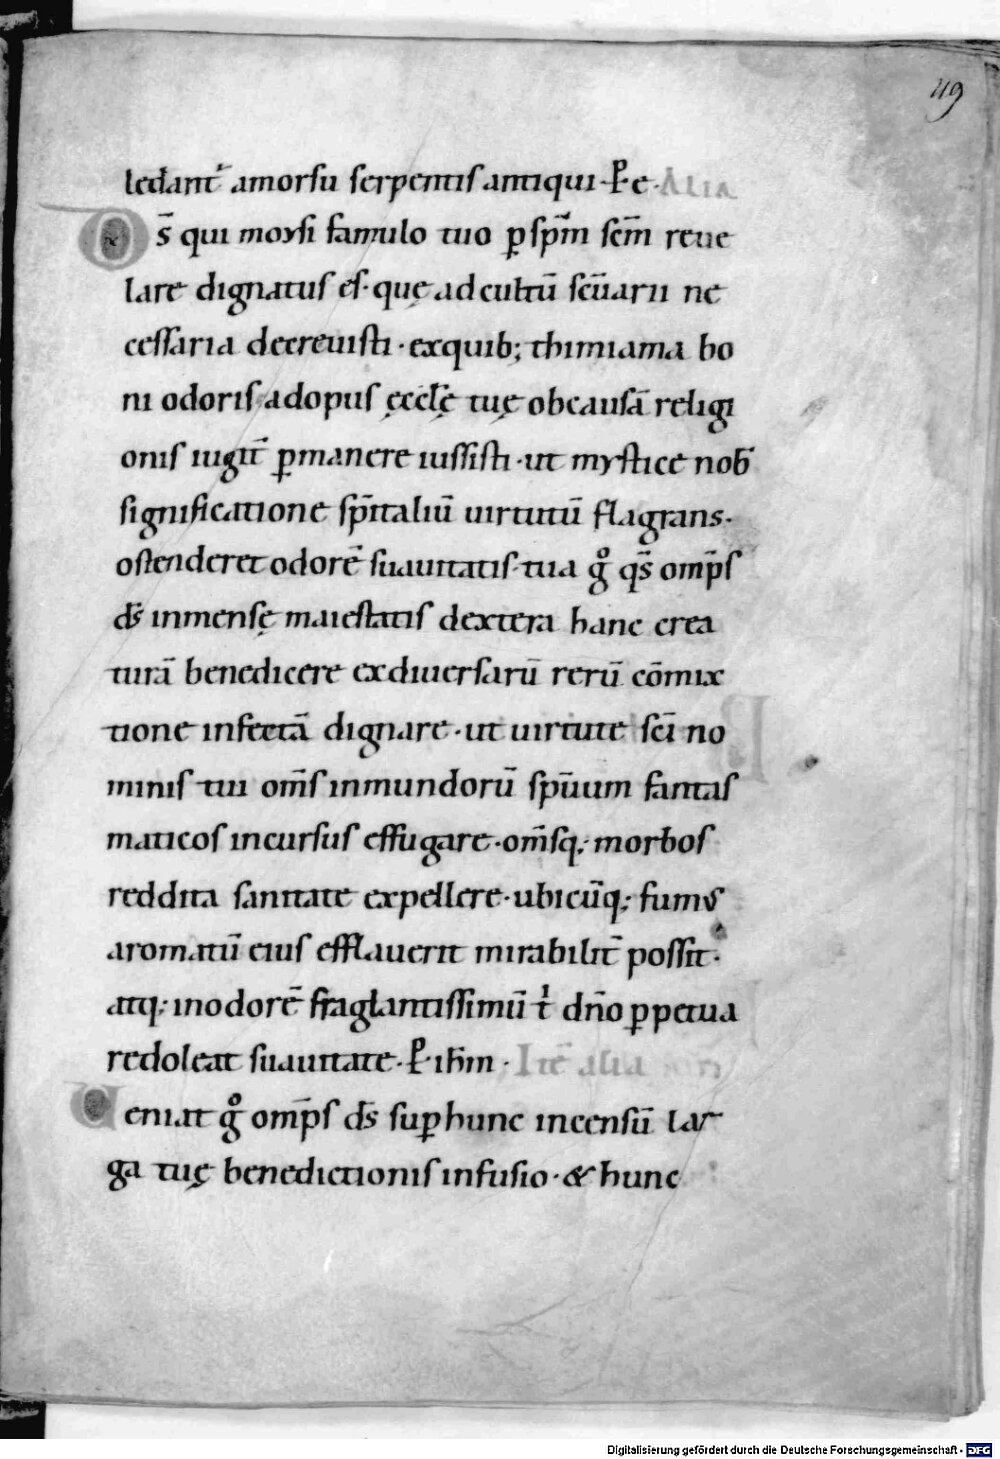 49
ledant᷑ a morsu serpentis antiqui · P̱ e · ALIA
Ds̄ qui moysi famulo tuo ꝑ sp̄m sc̄m reue
lare dignatus es · quę ad cultū sc̄uarii ne
cessaria decreuisti · ex quib; thimiama bo
ni odoris ad opus ęccłę tuę ob causā religi
onis iugit̄ ꝑmanere iussisti · ut mystice nob̄
significatione sp̄italiū uirtutū flagrans ·
ostenderet odorē suauitatis · tua gͦ qs̄ omp̄s
ds̄ inmensę maiestatis dextera hanc crea
turā benedicere ex diuersarū rerū cōmix
tione infectā dignare · ut uirtute sc̄i no
minis tui om̄s inmundorū sp̄uum fantas
maticos incursus effugare · om̄sq; morbos
reddita sanitate expellere · ubicūq; fumus
aromatū eius efflauerit mirabilit̄ possit ·
atq; in odorē fraglantissimū tⁱ dn̄o ꝑpetua
redoleat suauitate · P̱ · ihm̄ · Itē alia
Ueniat gͦ omp̄s ds̄ suꝑ hunc incensū lar
ga tuę benedictionis infusio · & hunc
Digitalisierung gefördert durch die Deutsche Forschungsgemeinschaft - DFG